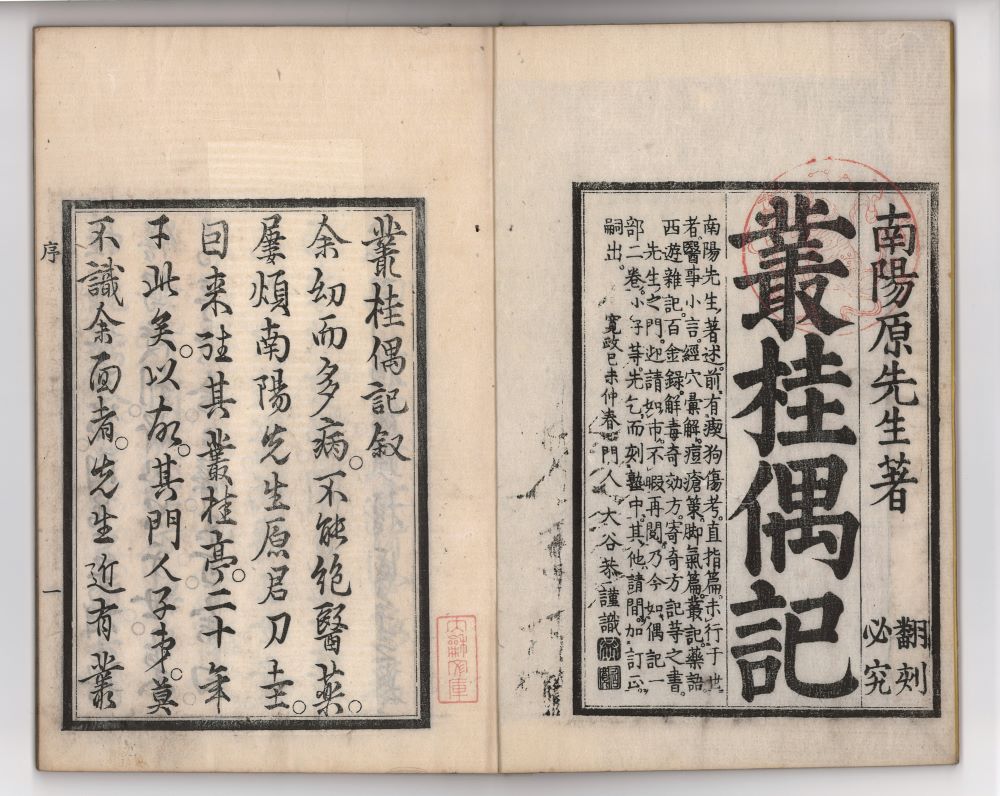 南陽原先生著
翻刻
必究
叢桂偶記
南陽先生、著述前有瘈狗傷考。直指篇。未行于世
者、醫事小言。經穴彙解。痘瘡策。脚氣篇。叢記。藥語
西遊雜記。百金錄。解毒奇効方。寄奇方記等之書。
先生之門。迎請如市。不暇再閱。乃今如偶記一
部二卷。小子等。先乞而刻塾中。其他請間。加訂正。
嗣出。
寬政己未仲春。門人大谷恭謹識
叢桂偶記叙
余幼而多病。不能絶醫藥。
屢煩南陽先生原君刀圭。
因來往其叢桂亭。二十年
于此矣。以故。其門人子弟。莫
不識余面者。先生近有叢
序
一
内務文庫